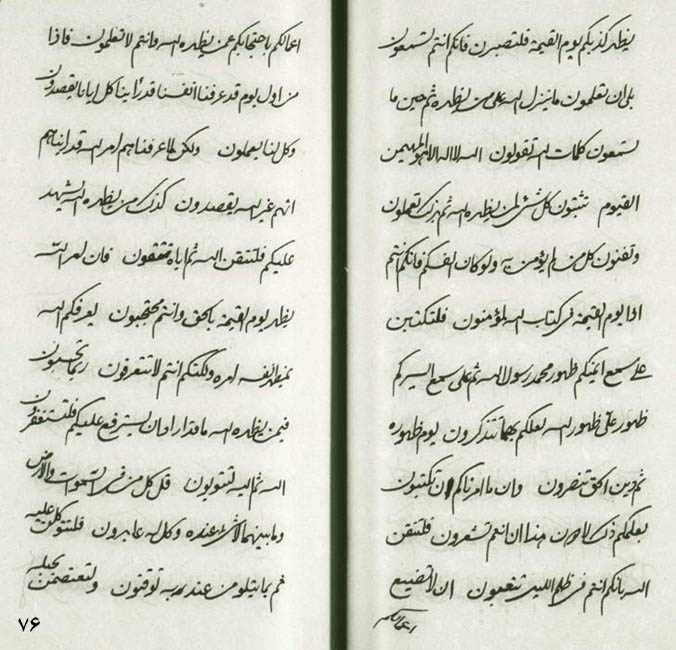 يظهر كذبكم يوم القيمة فلتصبرن فانكم انتم لتسمعون
بلى ان تعلمون ما ينزل الله على من يظهره ثم حين ما
تسمعون كلمات الله تقولون الله لا اله الا هو المهيمن
القيوم تثبتون كل شئ لمن يظهره الله ثم بذلك تعملون
وتفنون كل من لم يؤمن به ولو كان انفسكم فانكم انتم
اذا يوم القيمة فى كتاب الله لمؤمنون فلتكتبن
على سمع ايمنكم ظهور محمد رسول الله ثم على سمع ايسركم
ظهور على ظهور الله لعلكم بهما تتذكرون يوم ظهوره
ثم دين الحق تنصرون وان ما امرناكم ان تكتبون
بعلمكم ذلك لا دون هذا ان انتم تشعرون فلتتقن
الله بانكم انتم فى ظلم الليل تتعبون ان لا تضيع
اعمالكم
اعمالكم باحتجابكم عمن يظهره الله وانتم لا تعلمون فاذا
من اول يوم قد عرفنا انفسنا قد راينا كل ايانا يقصدون
وكل لنا يعملون ولكن لما عرفناهم امر الله قد ايناهم
انهم غير الله يقصدون كذلك من يظهره الله ليشهد
عليكم فلتتقن الله ثم اياه تتقون فان امر الله
يظهر يوم القيمة بالحق وانتم محتجبون يعرفكم الله
بمظهر نفسه امره ولكنكم انتم لا تتعرفون ربما تحتجبون
فيمن يظهره الله ما قد اراد ان يسترفع عليكم فلتستغفرن
الله ثم اليه لتتوبون قل كل من فى السموات والارض
وما بينهما لا شئ عنده وكل له عابدون فلتتوكلن عليه
ثم بما يتلو من عند ربه توقنون ولتعتصمن بحبله
۷۶